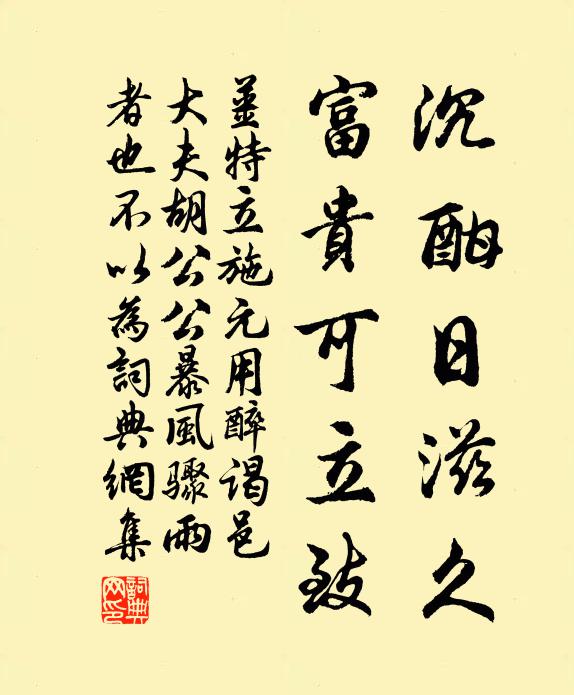 沉酣日滋久
富貴可立致
姜特立施元用醉謁邑
大夫胡公公暴風驟雨
者也不以為詞典網集
詞典網印